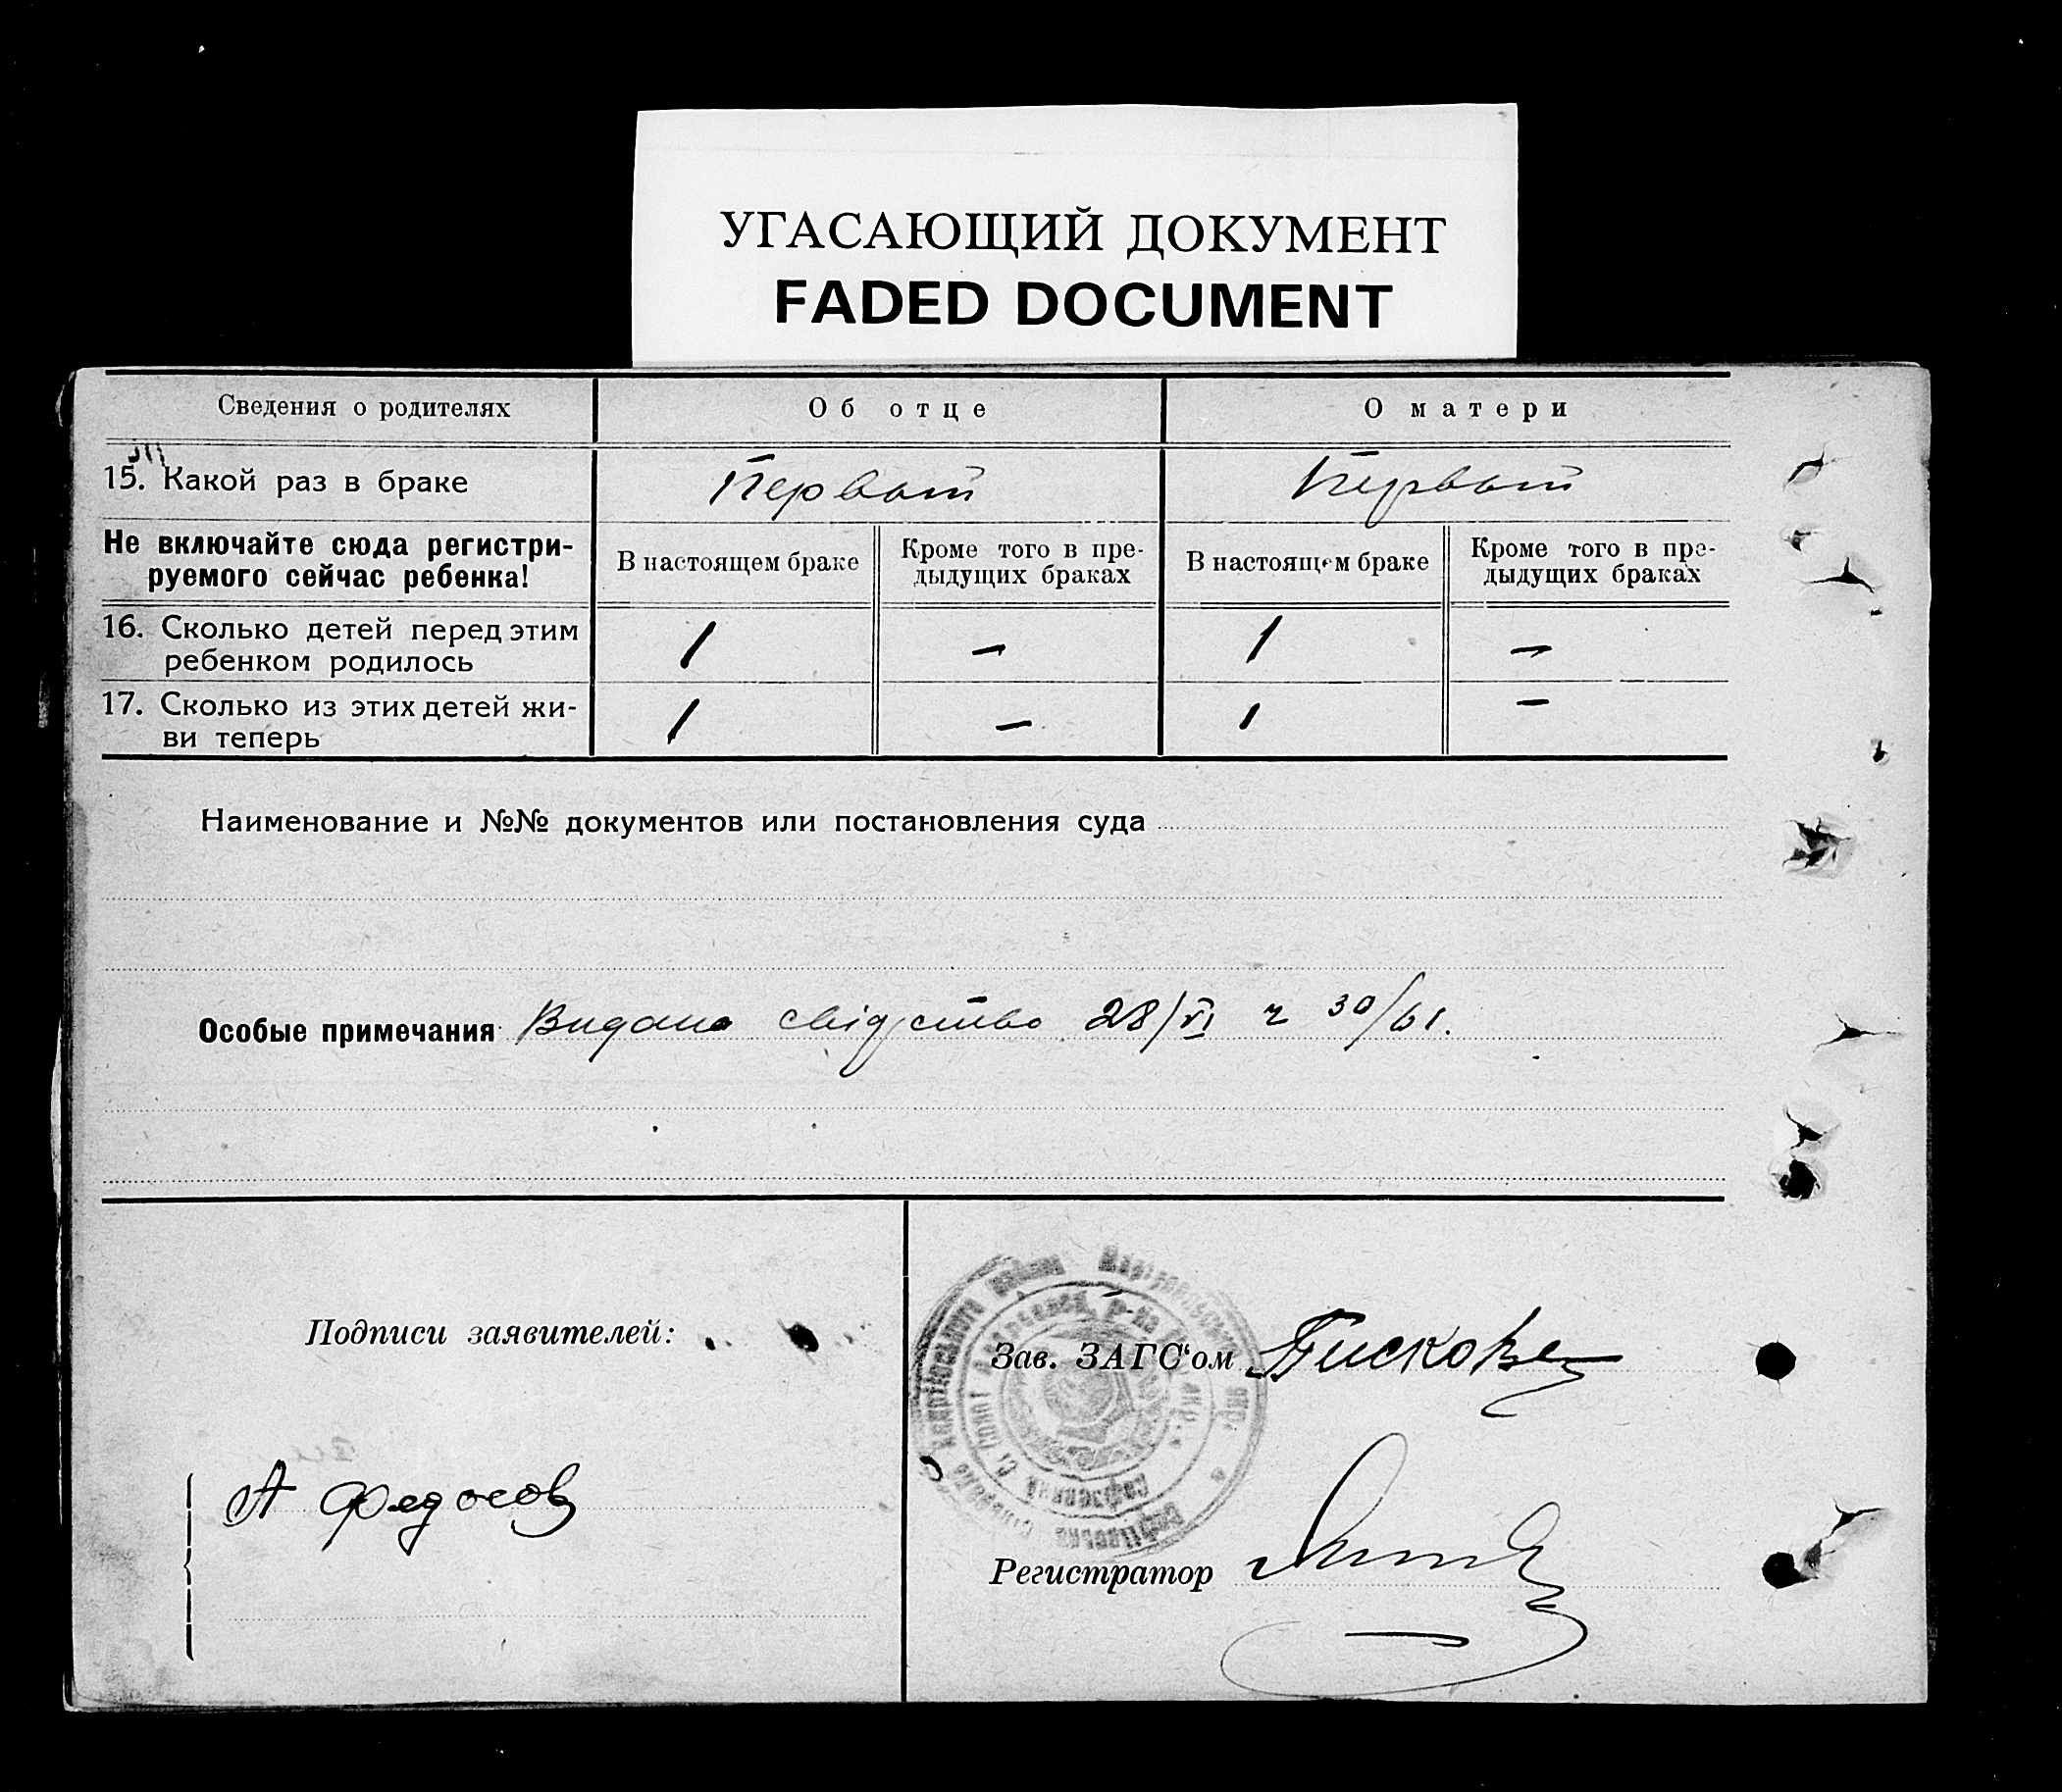 УГАСАЮЩИЙ ДОКУМЕНТ
FADED DOCUMENT
Сведения о родителях
Об отце
О матери
15. Какой раз в браке
Первый
Первый
Не включайте сюда регистри-
руемого сейчас ребенка!
В настоящем браке
Кроме того в пре-
дыдущих браках
В настоящем браке
Кроме того в пре-
дыдущих браках
16. Сколько детей перед этим
ребенком родилось
1
—
1
—
17. Сколько из этих детей жи-
ви теперь
1
—
1
—
Наименование и №№ документов или постановления суда
Особые примечания Видано свідоцтво 28/VI ч 30/61.
Подписи заявителей:
А Федосов
Зав. ЗАГС'ом
Регистратор